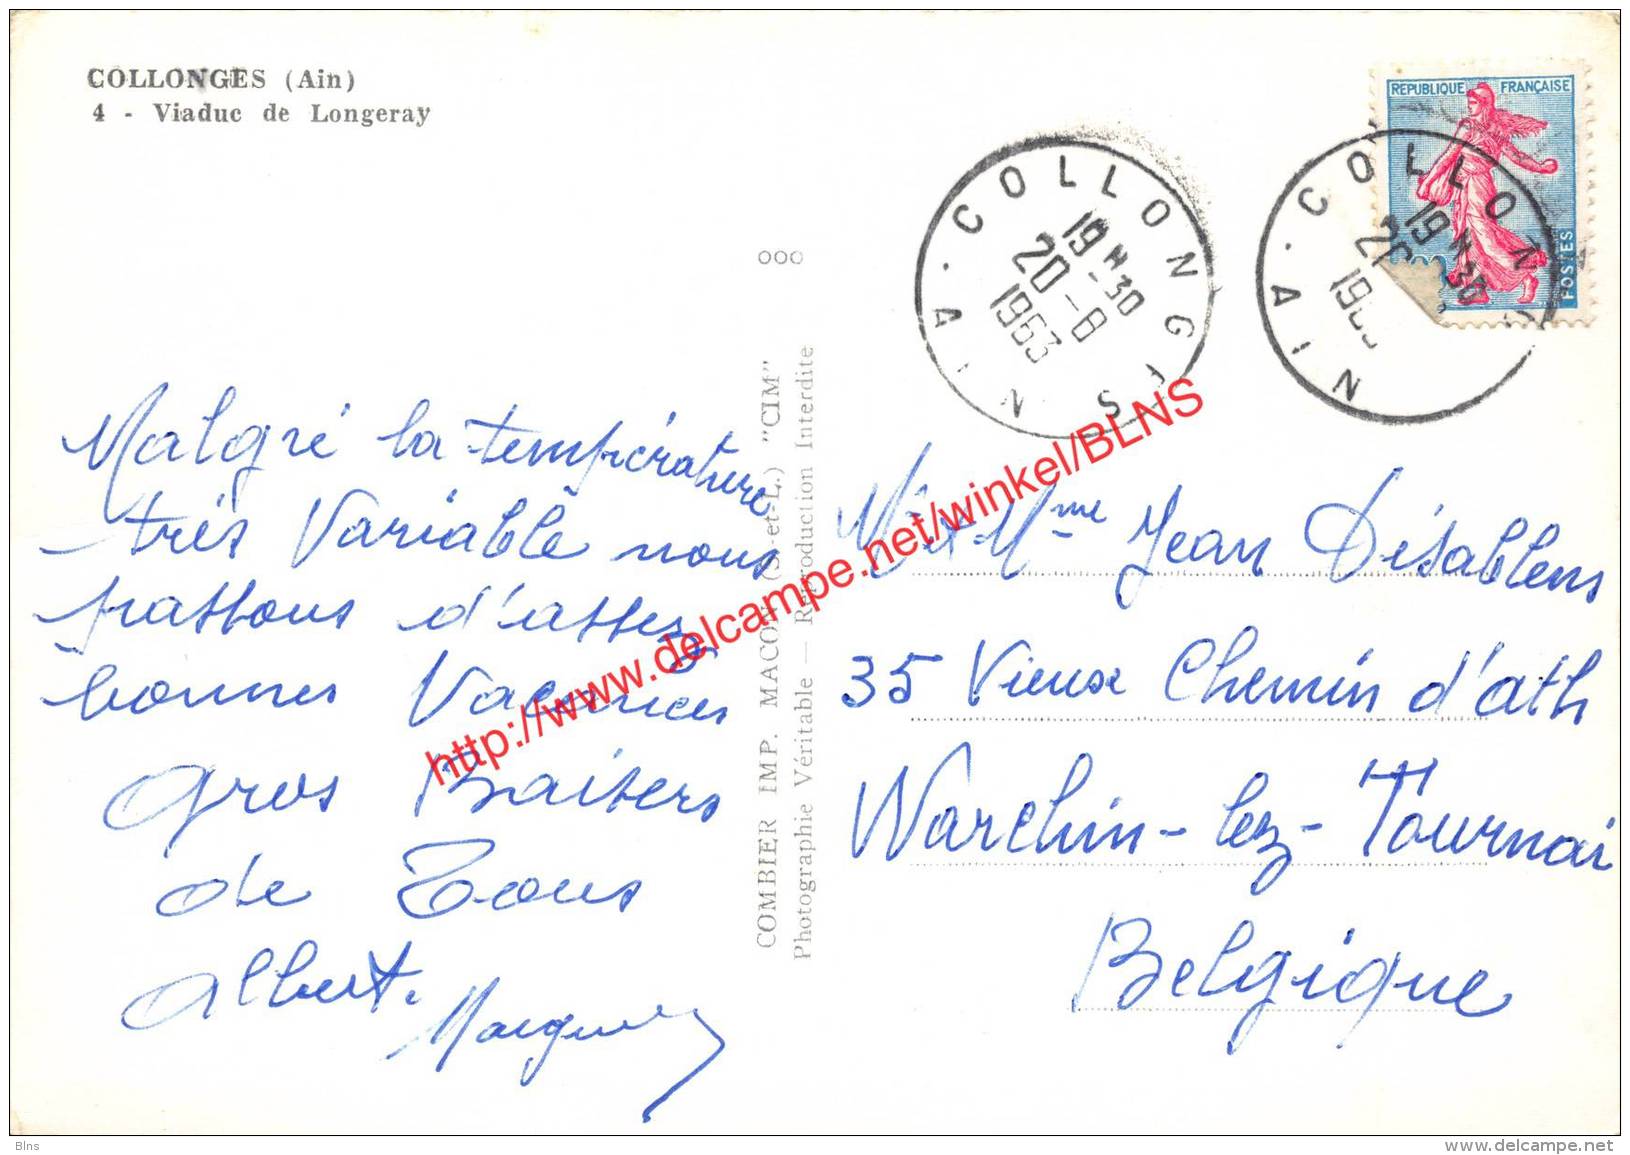 COLLONGES (Ain)
4 - Viaduc de Longeray
Malgré la température
très Variable nous
passons d'assez
bonnes Vacances
Gros Baisers
de Tous
Albert.
COMBIER IMP. MACON (S.-et-L.) "CIM"
Photographie Véritable — Reproduction Interdite
COLLONGES
AIN
19 H 30
20 - 8
1963
COLLON
AIN
19 H 30
REPUBLIQUE FRANÇAISE
POSTES
Mr & Mme Jean Désablens
35 Vieux Chemin d'ath
Warchin-lez-Tournai
Belgique
http://www.delcampe.net/winkel/BLNS
Blns
www.delcampe.net